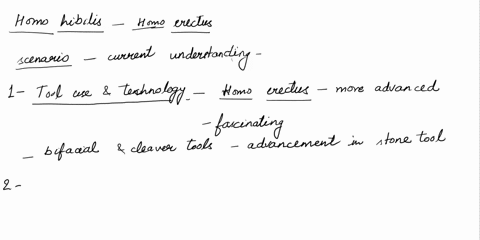 Homo hibilis - Homo erectus
scenario - current understanding -
1- Tool use & technology - Homo erectus - more advanced
- fascinating
- bifacial & cleaver tools - advancement in stone tool
2 -